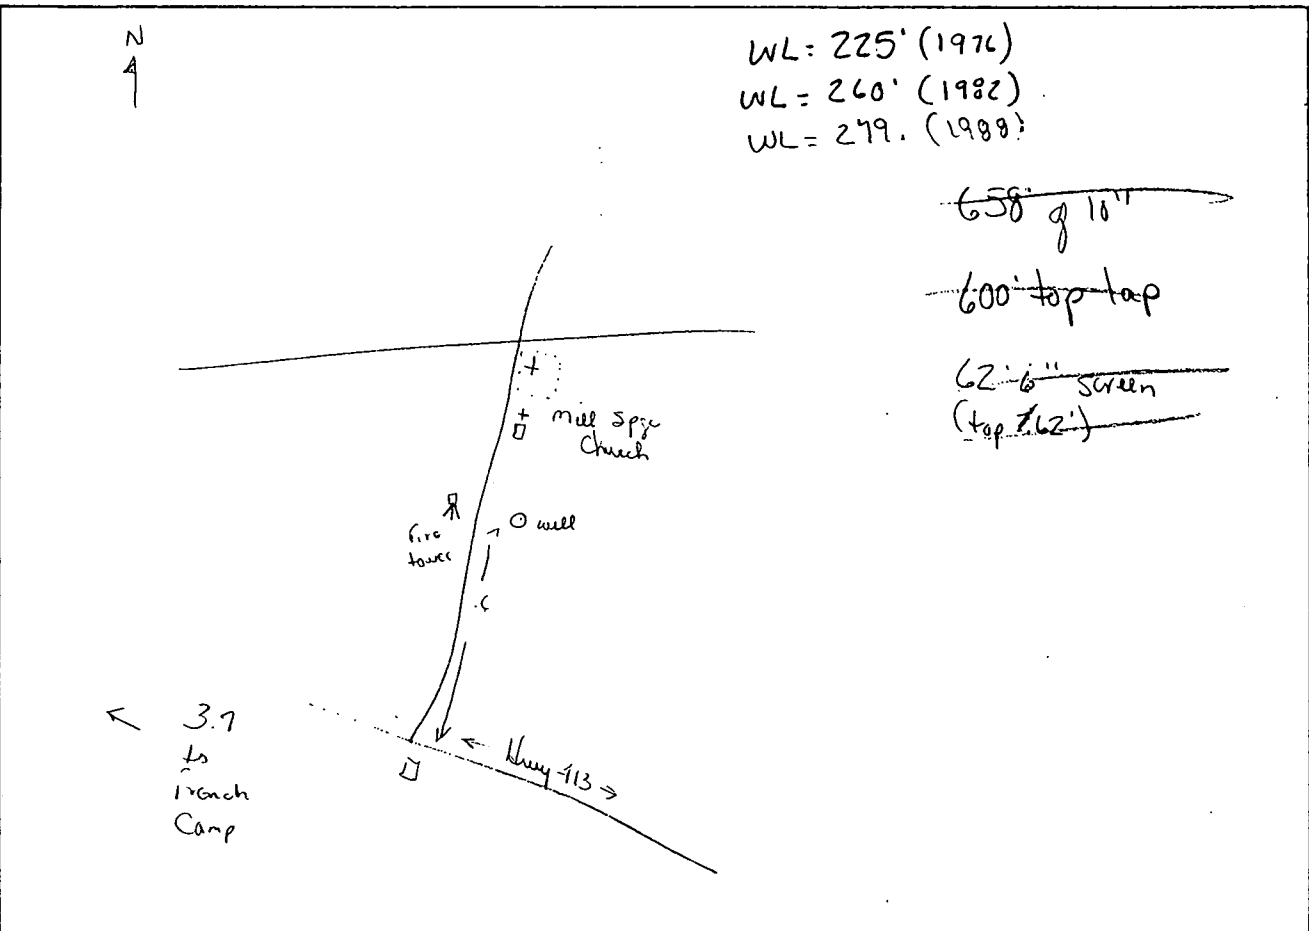 N
WL= 225' (1976)
WL = 260' (1982)
WL = 279. (1988)
658' of 10"
600' top lap
62' 6" screen
(top 62')
Mill Spgs
Church
fire
tower
well
.6
3.7
to
French
Camp
← Hwy 413 →